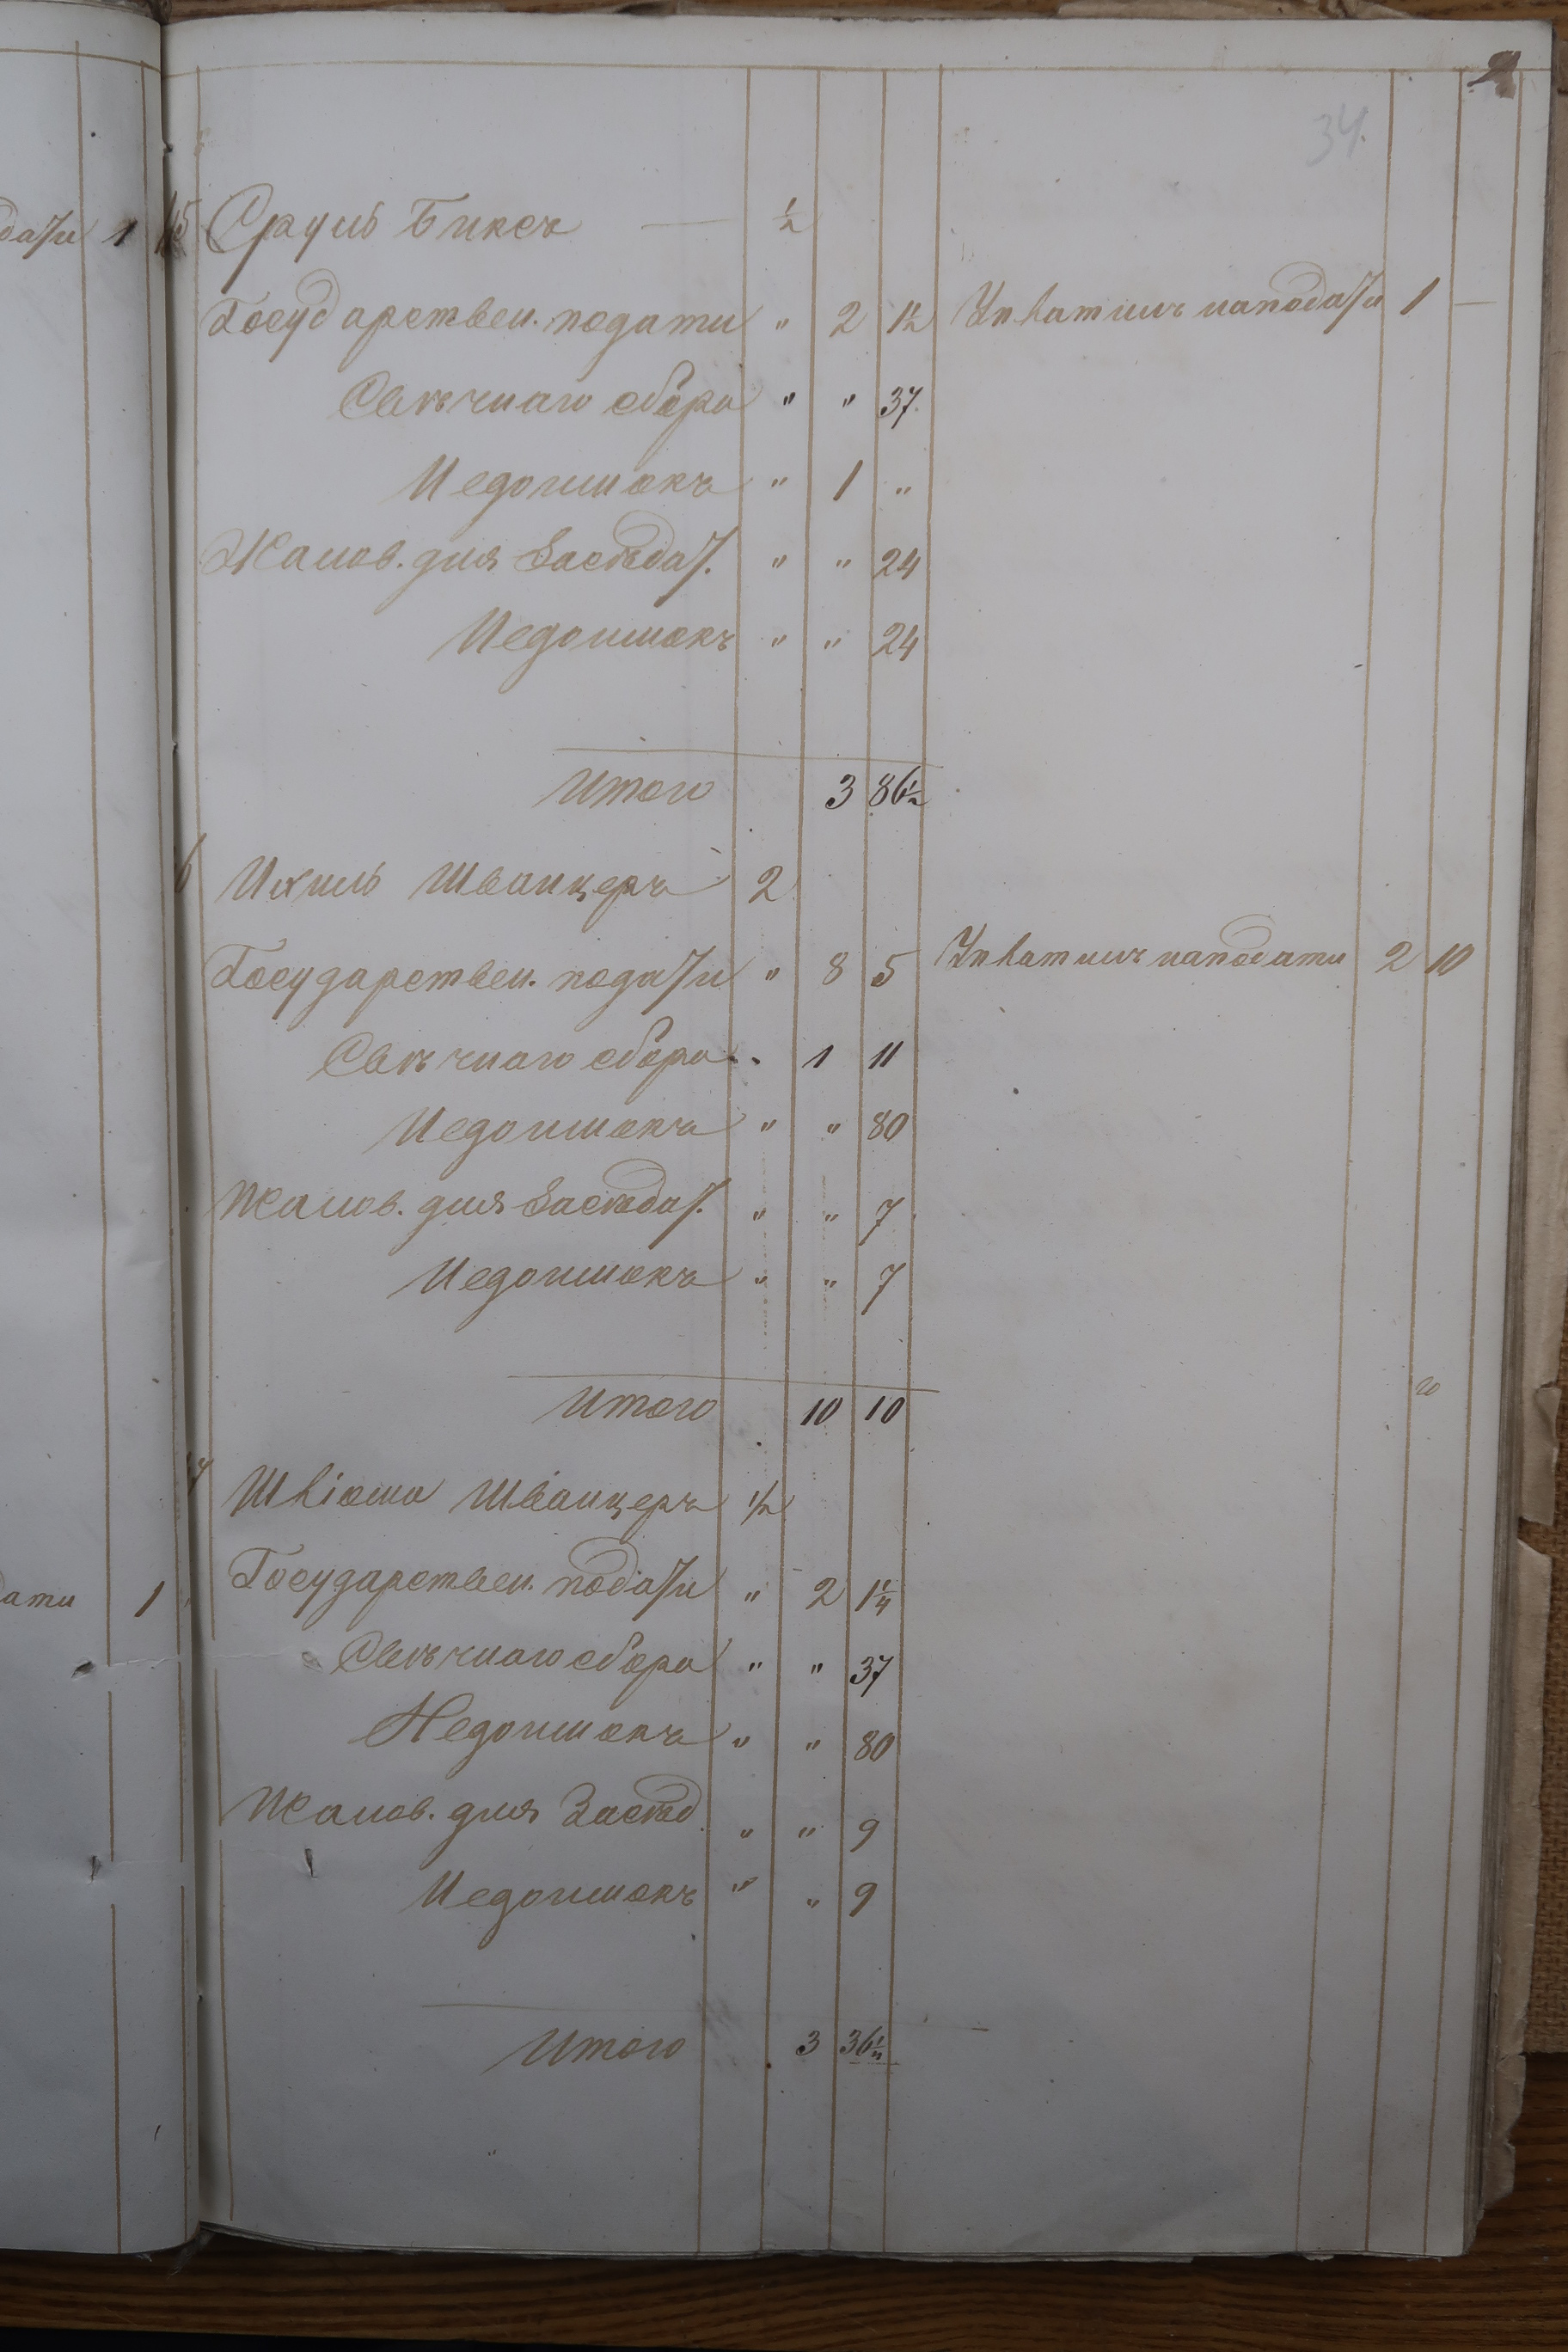 34.
дати 1
15 Сруль Биксъ — ½
Государствен. подати " 2 1½ Уплатилъ наподати 1 —
Свѣчнаго сбора " " 37.
Недоимокъ " 1 "
Жалов. для Засѣдат. " " 24
Недоимокъ " " 24
Итого 3 86½
6 Ихиль Шванцеръ 2
Государствен. подати " 8 5 Уплатилъ наподати 2 10
Свѣчнаго сбора " 1 11
Недоимокъ " " 80
Жалов. для Засѣдат. " " 7
Недоимокъ " " 7
Итого 10 10
7 Шліома Шванцеръ ½
Государствен. подати " 2 1¼
ати 1
Свѣчнаго сбора " " 37
Недоимокъ " " 80
Жалов. для Засѣд. " " 9
Недоимокъ " " 9
Итого 3 36¼